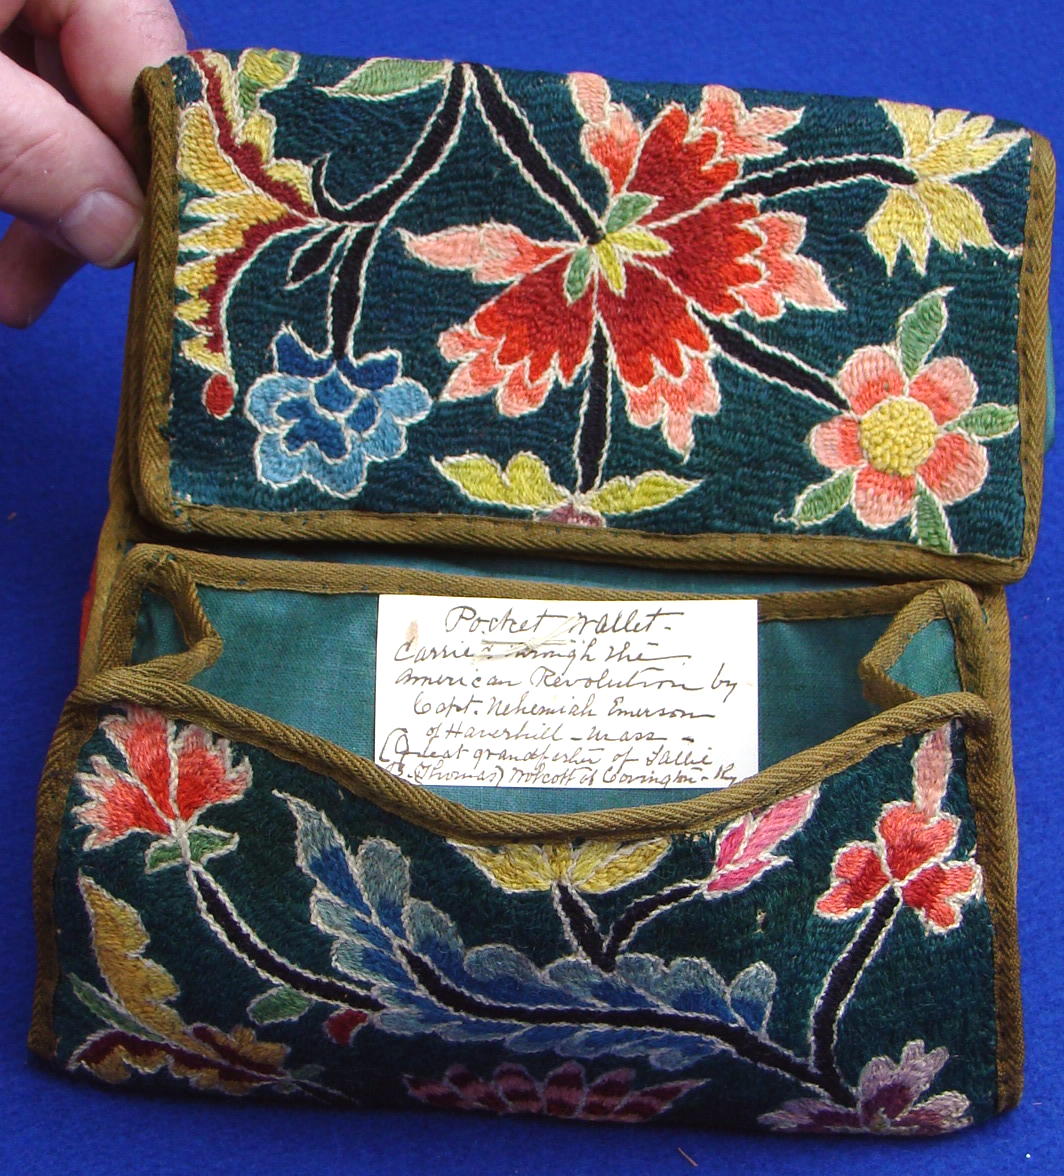 Pocket Wallet -
Carried through the
American Revolution by
Capt. Nehemiah Emerson
of Haverhill - Mass -
(Great grandfather of Sallie
(B. Thomas) Wolcott of Covington - Ky